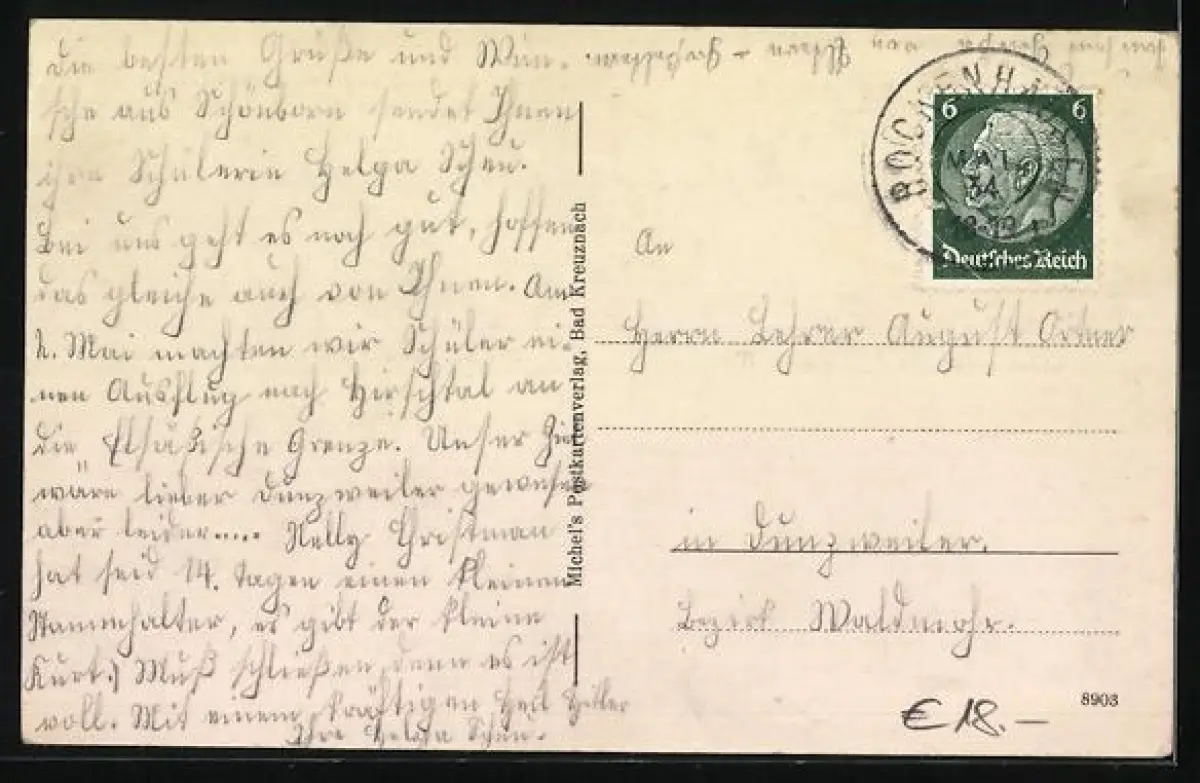 die besten Grüße und Wün-
sche aus Schönborn sendet Ihnen
ihre Schülerin Helga Scheu.
Bei uns geht es noch gut, hoffen
das gleiche auch von Ihnen. Am
2. Mai machten wir Schüler ei-
nen Ausflug nach Hirschtal an
die Elsäßische Grenze. Unser
wäre lieber Dunzweiler gewesen
aber leider..... Nelly Christman
hat seid 14. Tagen einen kleinen
Stammhalter, es gibt der kleine
Kurt.) Muß schließen, denn es ist
voll. Mit einem kräftigen Heil Hitler
Ihre Helga Scheu.
von Eltern - Geschwistern
Michel's Postkartenverlag, Bad Kreuznach
6 6
Deutsches Reich
MAI
34
An
Herrn Lehrer August Ortner
in Dunzweiler.
Bezirk Waldmohr.
8903
€ 18.-